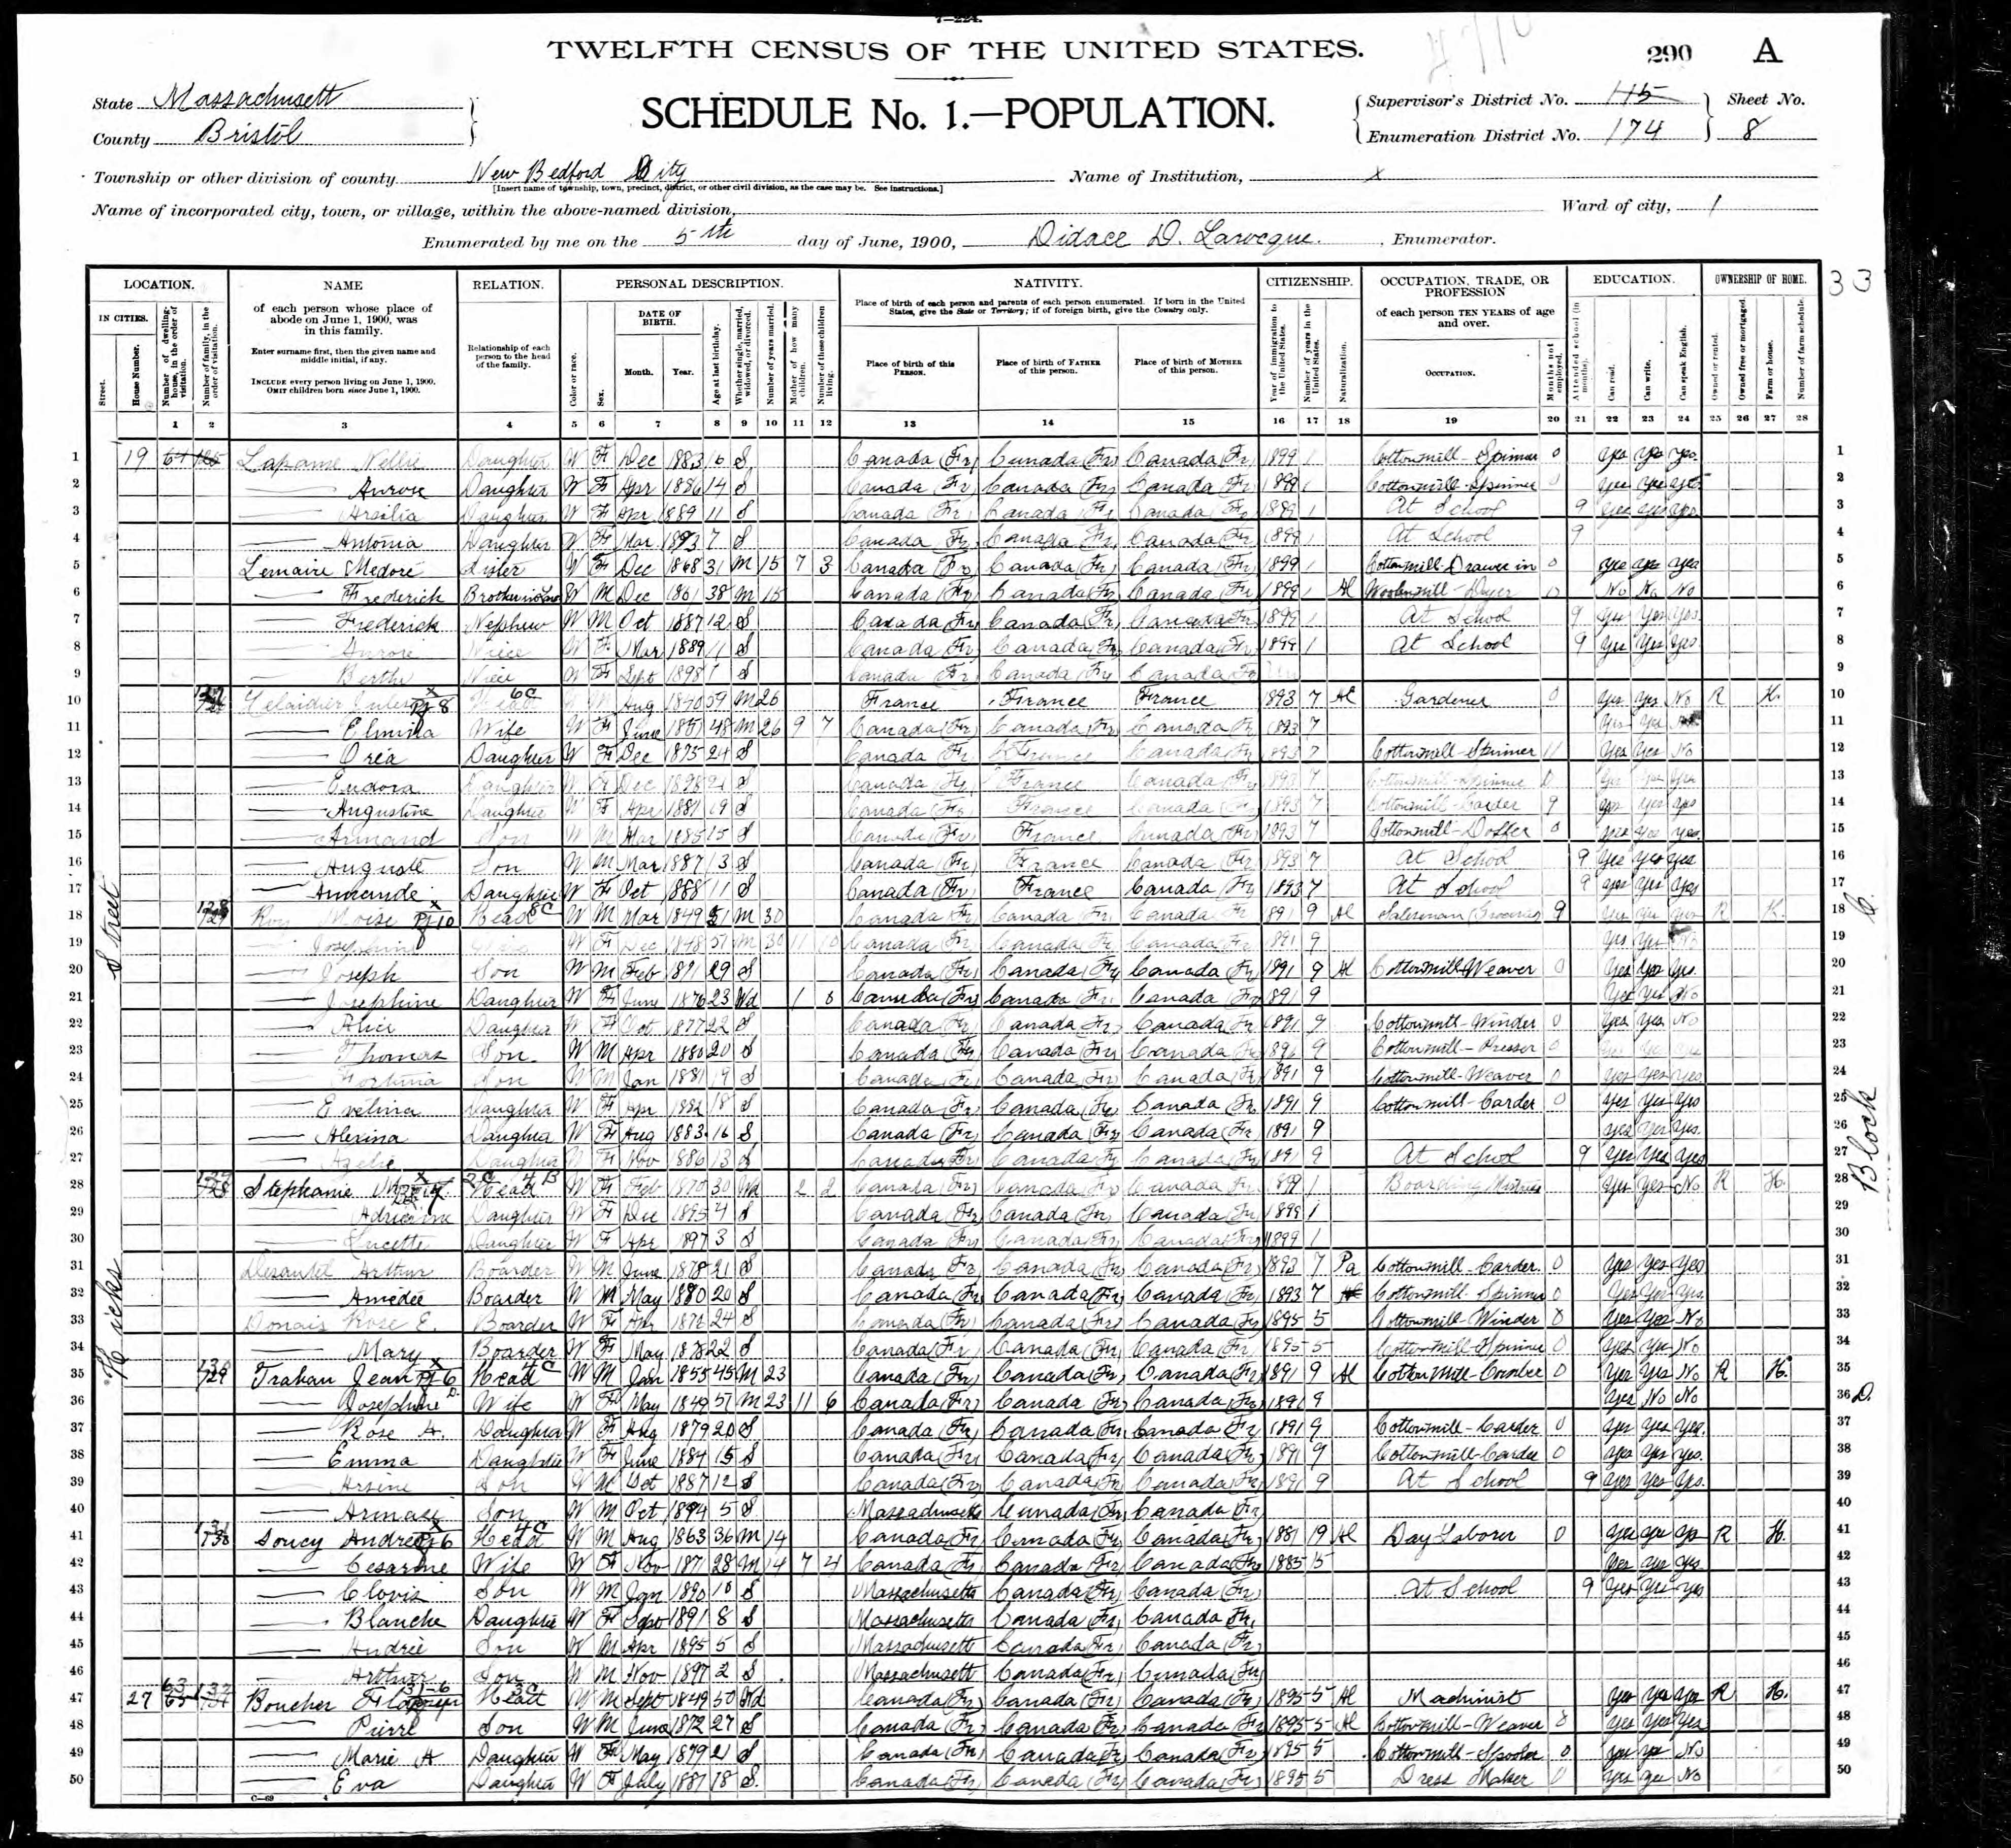 7-224.
TWELFTH CENSUS OF THE UNITED STATES.
290 A
State Massachusett
SCHEDULE No. 1.—POPULATION.
Supervisor's District No. 115
Sheet No.
County Bristol
Enumeration District No. 174
8
Township or other division of county New Bedford City
[Insert name of township, town, precinct, district, or other civil division, as the case may be. See instructions.]
Name of Institution, x
Name of incorporated city, town, or village, within the above-named division,
Ward of city, 1
Enumerated by me on the 5th day of June, 1900, Didace D. Larocque. , Enumerator.
33
LOCATION. NAME RELATION. PERSONAL DESCRIPTION. NATIVITY. CITIZENSHIP. OCCUPATION, TRADE, OR PROFESSION EDUCATION. OWNERSHIP OF HOME.
IN CITIES.
Street.
House Number.
Number of dwelling-house, in the order of visitation.
Number of family, in the order of visitation.
of each person whose place of abode on June 1, 1900, was in this family.
Enter surname first, then the given name and middle initial, if any.
INCLUDE every person living on June 1, 1900. OMIT children born since June 1, 1900.
Relationship of each person to the head of the family.
Color or race.
Sex.
DATE OF BIRTH.
Month. Year.
Age at last birthday.
Whether single, married, widowed, or divorced.
Number of years married.
Mother of how many children.
Number of these children living.
Place of birth of each person and parents of each person enumerated. If born in the United States, give the State or Territory; if of foreign birth, give the Country only.
Place of birth of this PERSON.
Place of birth of FATHER of this person.
Place of birth of MOTHER of this person.
Year of immigration to the United States.
Number of years in the United States.
Naturalization.
of each person TEN YEARS of age and over.
OCCUPATION.
Months not employed.
Attended school (in months).
Can read.
Can write.
Can speak English.
Owned or rented.
Owned free or mortgaged.
Farm or house.
Number of farm schedule.
1 2 3 4 5 6 7 8 9 10 11 12 13 14 15 16 17 18 19 20 21 22 23 24 25 26 27 28
1 19 Nellie Daughter W F Dec 1883 16 S Canada (Fr) Canada (Fr) Canada (Fr) 1899 1 Cottonmill-Spinner 0 yes yes yes 1
2 Aurore Daughter W F Apr 1886 14 S Canada (Fr) Canada (Fr) Canada (Fr) 1899 1 Cottonmill-Spinner 0 yes yes yes 2
3 Daughter W F Apr 1889 11 S Canada (Fr) Canada (Fr) Canada (Fr) 1899 1 At School 9 yes yes yes 3
4 Antonia Daughter W F Mar 1893 7 S Canada (Fr) Canada (Fr) Canada (Fr) 1899 1 At School 9 4
5 Lemaire Medore Sister W F Dec 1868 31 M 15 7 3 Canada (Fr) Canada (Fr) Canada (Fr) 1899 1 Cottonmill-Drawer in 0 yes yes yes 5
6 Frederick Brother in Law W M Dec 1861 38 M 15 Canada (Fr) Canada (Fr) Canada (Fr) 1899 1 Al Woolenmill-Dyer 0 No No No 6
7 Frederick Nephew W M Oct 1887 12 S Canada (Fr) Canada (Fr) Canada (Fr) 1899 1 At School 9 yes yes yes 7
8 Aurore Niece W F Mar 1889 11 S Canada (Fr) Canada (Fr) Canada (Fr) 1899 1 At School 9 yes yes yes 8
9 Berthe Niece W F Sept 1898 1 S Canada (Fr) Canada (Fr) Canada (Fr) 9
10 Head W M Aug 1840 59 M 26 France France France 1893 7 Al Gardener 0 yes yes No R H. 10
11 Elmina Wife W F June 1851 48 M 26 9 7 Canada (Fr) Canada (Fr) Canada (Fr) 1893 7 yes yes 11
12 Oréa Daughter W F Dec 1875 24 S Canada (Fr) France Canada (Fr) 1893 7 Cottonmill-Spinner yes yes No 12
13 Eudora Daughter W F Dec 1898 21 S Canada (Fr) France Canada (Fr) 1893 7 Cottonmill-Spinner 0 yes yes yes 13
14 Augustine Daughter W F Apr 1881 19 S Canada (Fr) France Canada (Fr) 1893 7 Cottonmill-Carder 9 yes yes yes 14
15 Armand Son W M Mar 1885 15 S Canada (Fr) France Canada (Fr) 1893 7 Cottonmill-Doffer 0 yes yes yes 15
16 Auguste Son W M Mar 1887 13 S Canada (Fr) France Canada (Fr) 1893 7 At School 9 yes yes yes 16
17 Daughter W F Oct 1888 11 S Canada (Fr) France Canada (Fr) 1893 7 At School 9 yes yes yes 17
18 Roy Moise Head W M Mar 1849 51 M 30 Canada (Fr) Canada (Fr) Canada (Fr) 1891 9 Al Salesman 9 yes yes yes R H. 18
19 W F Dec 1848 51 M 30 11 10 Canada (Fr) Canada (Fr) Canada (Fr) 1891 9 yes yes No 19
20 Joseph Son W M Feb 1871 29 S Canada (Fr) Canada (Fr) Canada (Fr) 1891 9 Al Cottonmill Weaver 0 yes yes yes 20
21 Josephine Daughter W F June 1876 23 Wd 1 0 Canada (Fr) Canada (Fr) Canada (Fr) 1891 9 yes yes No 21
22 Alice Daughter W F Oct 1877 22 S Canada (Fr) Canada (Fr) Canada (Fr) 1891 9 Cottonmill-Winder 0 yes yes No 22
23 Thomas Son W M Apr 1880 20 S Canada (Fr) Canada (Fr) Canada (Fr) 1891 9 Cottonmill-Presser 0 yes yes yes 23
24 Son W M Jan 1881 19 S Canada (Fr) Canada (Fr) Canada (Fr) 1891 9 Cottonmill-Weaver 0 yes yes yes 24
25 Evelina Daughter W F Apr 1882 18 S Canada (Fr) Canada (Fr) Canada (Fr) 1891 9 Cottonmill Carder 0 yes yes yes 25
26 Alexina Daughter W F Aug 1883 16 S Canada (Fr) Canada (Fr) Canada (Fr) 1891 9 yes yes yes 26
27 Daughter W F Nov 1886 13 S Canada (Fr) Canada (Fr) Canada (Fr) 1891 9 At School 9 yes yes yes 27
28 Stephanie Head W F Feb 1870 30 Wd 2 2 Canada (Fr) Canada (Fr) Canada (Fr) 1899 1 Boarding Mistress yes yes No R H. 28
29 Daughter W F Dec 1895 4 S Canada (Fr) Canada (Fr) Canada (Fr) 1899 1 29
30 Lucette Daughter W F Apr 1897 3 S Canada (Fr) Canada (Fr) Canada (Fr) 1899 1 30
31 Desautel Arthur Boarder W M June 1878 21 S Canada (Fr) Canada (Fr) Canada (Fr) 1893 7 Pa Cottonmill-Carder 0 yes yes yes 31
32 Amedee Boarder W M May 1880 20 S Canada (Fr) Canada (Fr) Canada (Fr) 1893 7 Cottonmill Spinner 0 yes yes yes 32
33 Donais Rose E. Boarder W F Apr 1876 24 S Canada (Fr) Canada (Fr) Canada (Fr) 1895 5 Cottonmill Winder yes yes No 33
34 Mary Boarder W F May 1878 22 S Canada (Fr) Canada (Fr) Canada (Fr) 1895 5 Cottonmill-Spinner 0 yes yes No 34
35 Trahan Jean Head W M Jan 1855 45 M 23 Canada (Fr) Canada (Fr) Canada (Fr) 1891 9 Al Cotton Mill-Comber 0 yes yes No R H. 35
36 Josephine Wife W F May 1849 51 M 23 11 6 Canada (Fr) Canada (Fr) Canada (Fr) 1891 9 yes No No 36
37 Rose A. Daughter W F Aug 1879 20 S Canada (Fr) Canada (Fr) Canada (Fr) 1891 9 Cottonmill-Carder 0 yes yes yes 37
38 Emma Daughter W F June 1884 15 S Canada (Fr) Canada (Fr) Canada (Fr) 1891 9 Cottonmill-Carder 0 yes yes yes. 38
39 Arsine Son W M Oct 1887 12 S Canada (Fr) Canada (Fr) Canada (Fr) 1891 9 At School 9 yes yes yes. 39
40 Son W M Oct 1894 5 S Massachusetts Canada (Fr) Canada (Fr) 40
41 Soucy Andre Head W M Aug 1863 36 M 14 Canada (Fr) Canada (Fr) Canada (Fr) 1881 19 Al Day Laborer 0 yes yes yes R H. 41
42 Cesarine Wife W F Nov 1871 28 M 14 7 4 Canada (Fr) Canada (Fr) Canada (Fr) 1885 15 yes yes yes 42
43 Clovis Son W M Jan 1890 10 S Massachusetts Canada (Fr) Canada (Fr) At School 9 yes yes yes 43
44 Blanche Daughter W F Sept 1891 8 S Massachusetts Canada (Fr) Canada (Fr) 44
45 Andrée Son W M Apr 1895 5 S Massachusetts Canada (Fr) Canada (Fr) 45
46 Arthur Son W M Nov 1897 2 S Massachusett Canada (Fr) Canada (Fr) 46
47 27 Boucher Head W M Sept 1849 50 Wd Canada (Fr) Canada (Fr) Canada (Fr) 1895 5 Al Machinist yes yes yes R H. 47
48 Pierre Son W M June 1872 27 S Canada (Fr) Canada (Fr) Canada (Fr) 1895 5 Al Cottonmill-Weaver 8 yes yes yes 48
49 Marie A Daughter W F May 1879 21 S Canada (Fr) Canada (Fr) Canada (Fr) 1895 5 Cottonmill-Spooler 0 yes yes No 49
50 Eva Daughter W F July 1881 18 S. Canada (Fr) Canada (Fr) Canada (Fr) 1895 5 Dress Maker 0 yes yes No 50
Hicks Street
Block C.
D.
C-69 4